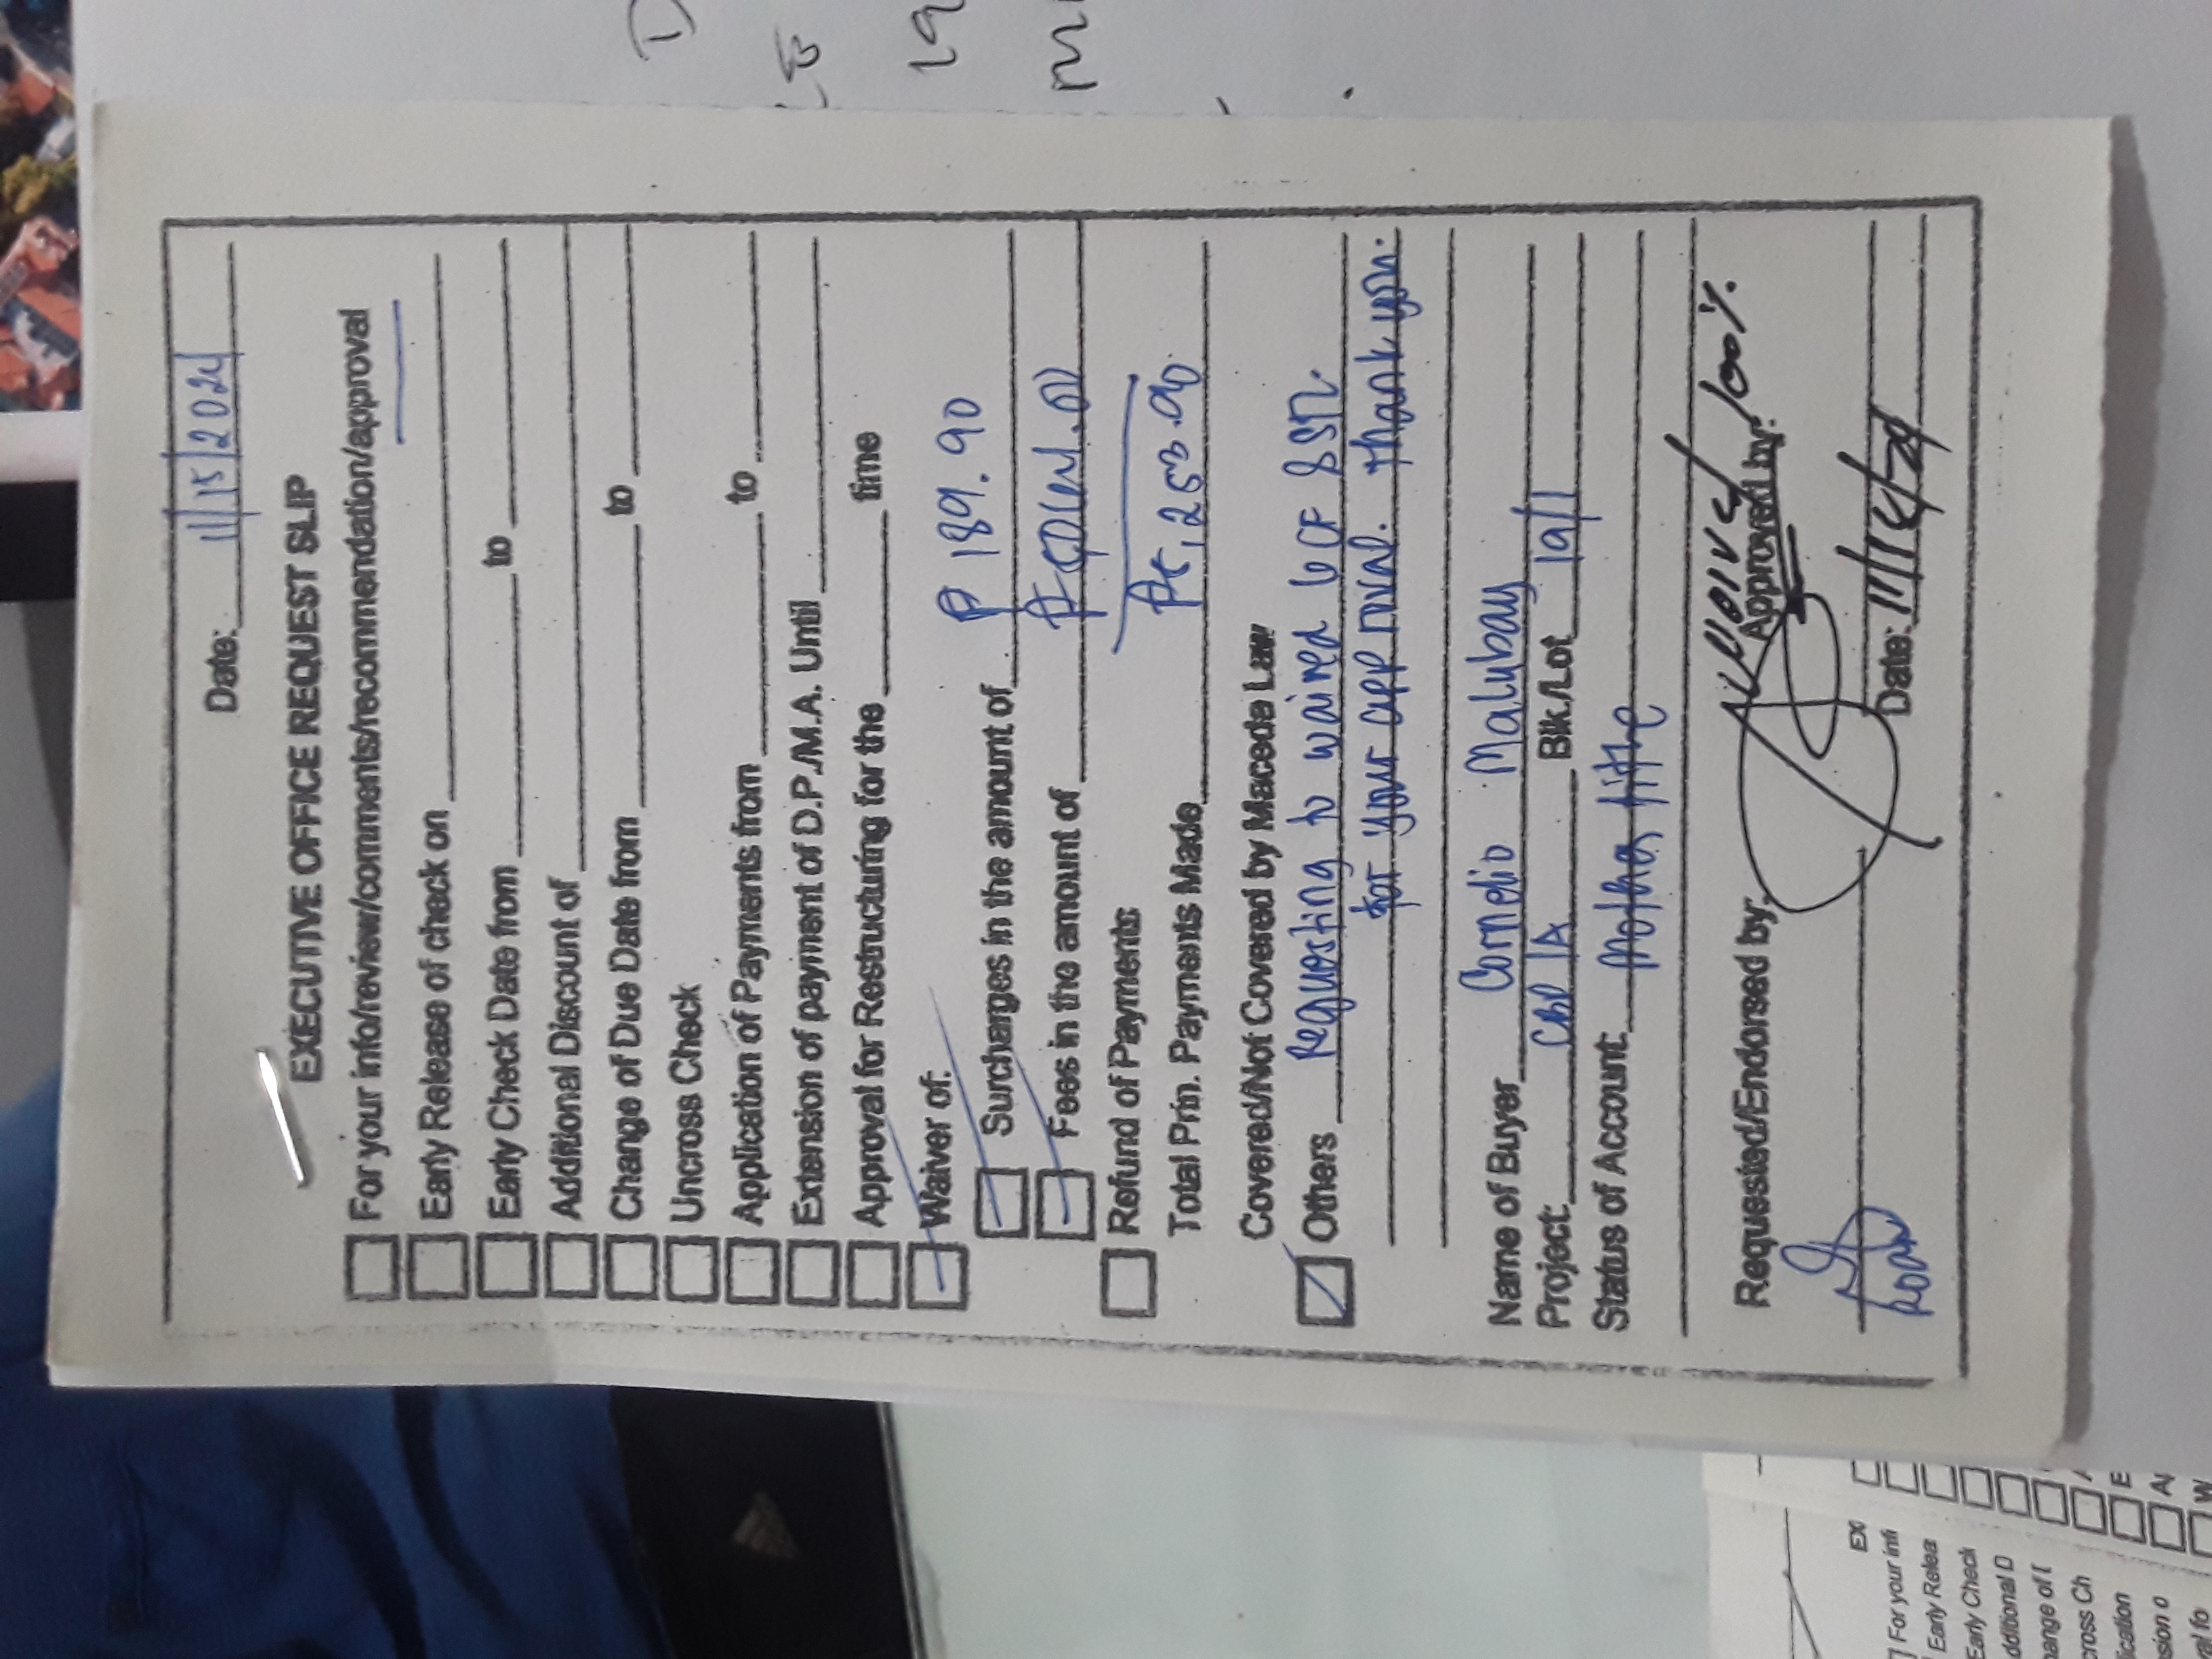 Date: 11/15/2024
EXECUTIVE OFFICE REQUEST SLIP
For your info/review/comments/recommendation/approval
Early Release of check on
Early Check Date from to
Additional Discount of
Change of Due Date from to
Uncross Check
Application of Payments from to
Extension of payment of D.P./M.A. Until
Approval for Restructuring for the time
Waiver of:
Surcharges in the amount of ₱ 189.90
Fees in the amount of ₱
Refund of Payments
Total Prin. Payments Made ₱5,253.90
Covered/Not Covered by Maceda Law
Others Requesting to waived &
for your approval. Thank you.
Name of Buyer Cornelio Malubay
Project: 1A Blk./Lot 19/1
Status of Account: Mother title
waived 100%
Requested/Endorsed by: Approved by:
Roan
Date:
EX
For your inf
Early Relea
Early Check
dditional D
hange of
cross Ch
lication
sion o
val fo